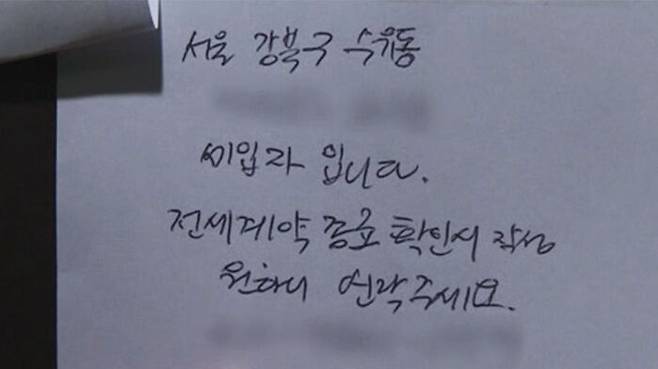 서울 강북구 수유동
세입자 입니다.
전세계약 종료 확인서 작성
원하니 연락주세요.